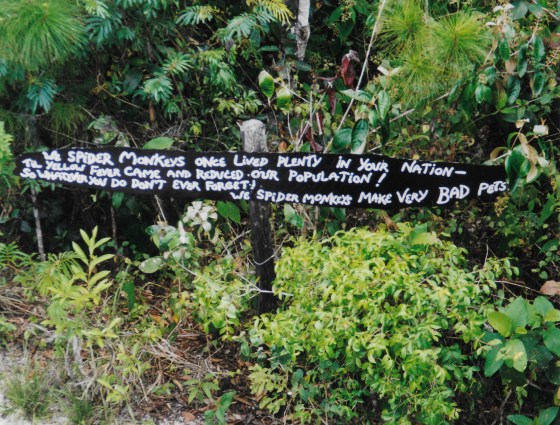 WE SPIDER MONKEYS ONCE LIVED PLENTY IN YOUR NATION -
TIL YELLOW FEVER CAME AND REDUCED OUR POPULATION!
SO WHATEVER YOU DO DON'T EVER FORGET!
WE SPIDER MONKEYS MAKE VERY BAD PETS!